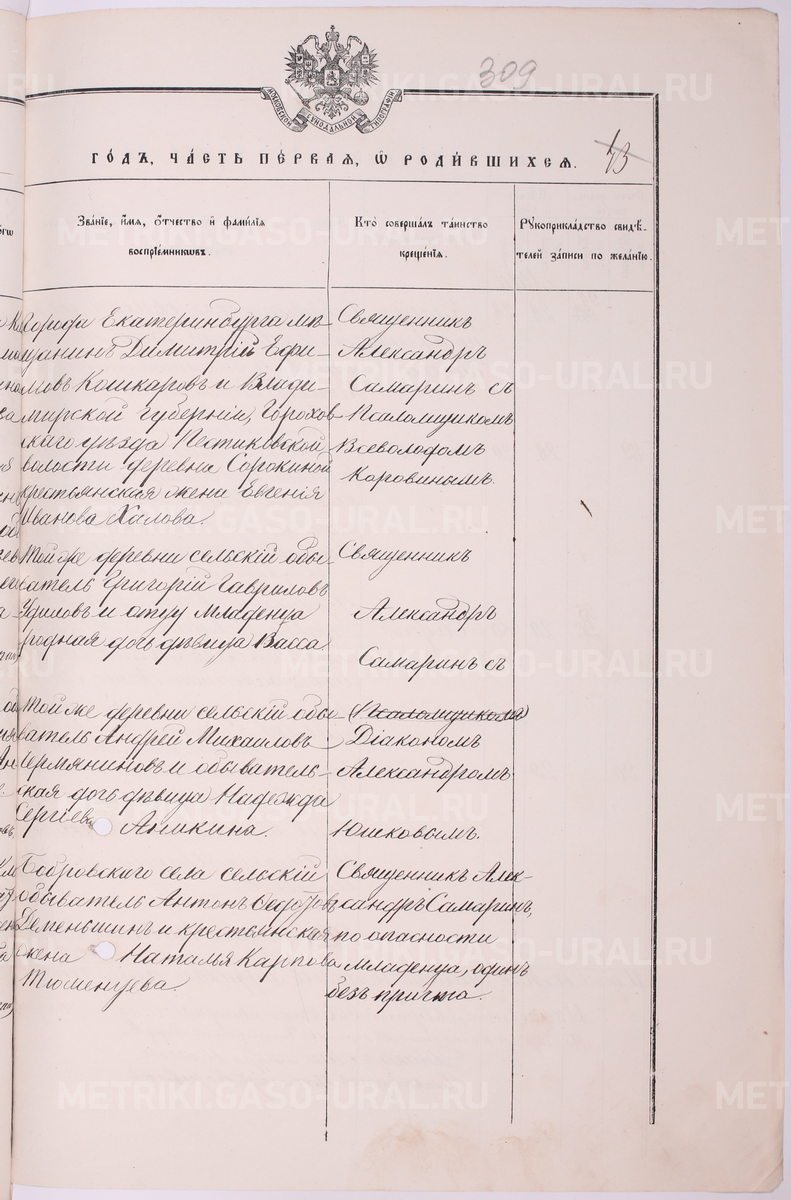 309
МОСКОВСКОЙ СѴНОДАЛЬНОЙ ТИПОГРАФІИ
ГО́ДЪ, ЧА́СТЬ ПЕ́РВАЯ, Ѡ РОДИ́ВШИХСЯ.
Зва́ніе, и́мя, о́тчество и фами́лія
воспріе́мниковъ.
Кто̀ соверша́лъ та́инство
креще́нія.
Рукоприкла́дство свидѣ́-
телей за́писи по жела́нію.
Города Екатеринбурга мѣ-
щанинъ Димитрій Ефи-
мовъ Кошкаровъ и Влади-
мирской губерніи, Горохов-
скаго уѣзда
волости деревни Сорокиной
крестьянская жена Евгенія
Иванова Халова.
Священникъ
Александръ
Самаринъ съ
Псаломщикомъ
Всеволодомъ
Коровинымъ.
Той же деревни сельскій обы-
ватель Григорій Гавриловъ
и отцу младенца
родная дочь дѣвица Васса.
Священникъ
Александръ
Самаринъ съ
Той же деревни сельскій обы-
ватель Андрей Михаиловъ
Пермяниновъ и обыватель-
ская дочь дѣвица Надежда
Сергіева Аникина.
(Псаломщикомъ)
Діакономъ
Александромъ
Юшковымъ.
Бобровскаго села сельскій
обыватель Антонъ Ѳедотовъ
Деменьшинъ и крестьянская
жена Наталія Карпова
Тюменцева.
Священникъ Алек-
сандръ Самаринъ,
по опасности
младенца, одинъ
безъ причта.
METRIKI.GASO-URAL.RU